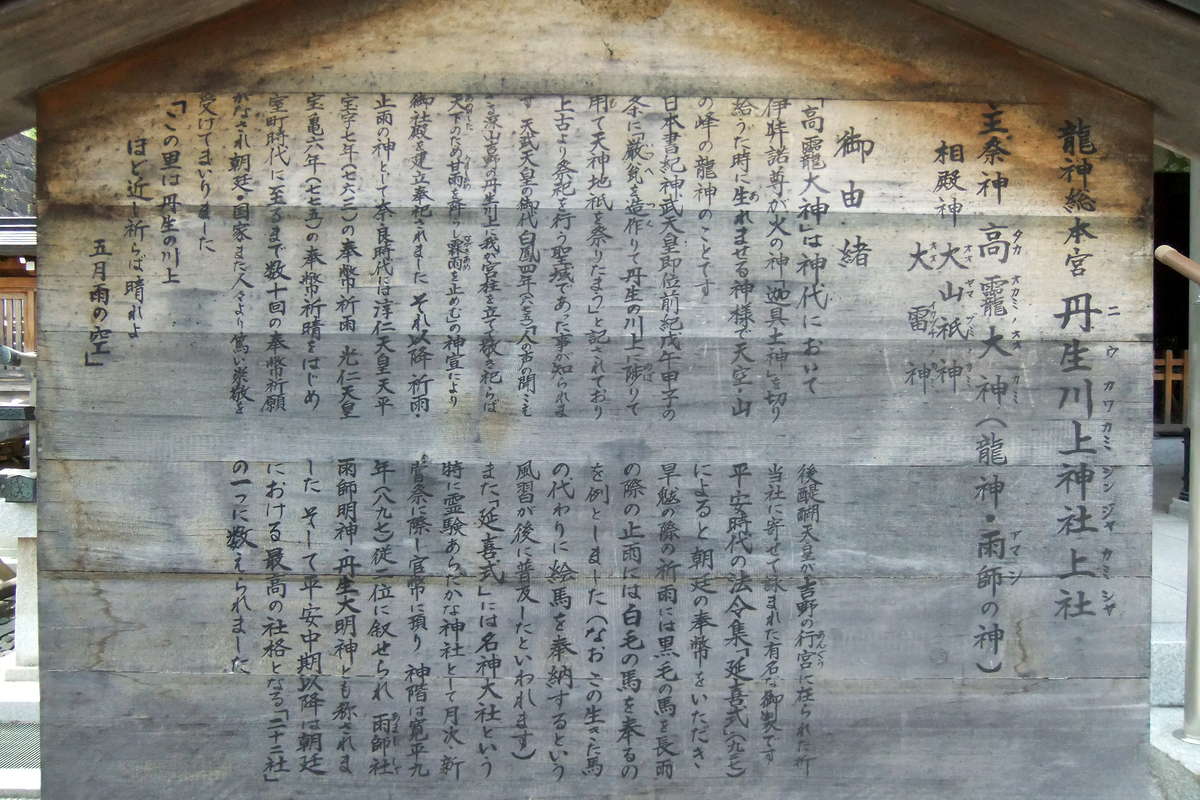 龍神総本宮 丹生川上神社上社
ニウカワカミジンジャカミシャ
主祭神 高龗大神(龍神・雨師の神)
タカオカミノオオカミ
アマシ
相殿神 大山祇神
オオヤマヅミノカミ
大雷神
オオイカヅチノカミ
御由緒
「高龗大神」は神代において
伊弉諾尊が火の神「迦具土神」を切り
給うた時に生れませる神様で天空・山
の峰の龍神のことです
日本書紀神武天皇即位前紀戊午甲子の
条に「厳瓮を造作りて丹生の川上に陟りて
用て天神地祇を祭りたまう」と記されており
上古より祭祀を行う聖域であった事が知られま
す 天武天皇の御代白鳳四年(六七五)「人の声の聞こえ
ざる深山吉野の丹生川上に我が宮柱を立て敬き祀らば
天下のため甘雨を降らし霖雨を止めむ」の神宣により
御社殿を建立奉祀されました それ以降祈雨・
止雨の神として奈良時代には淳仁天皇天平
宝字七年(七六三)の奉幣祈雨 光仁天皇
宝亀六年(七七五)の奉幣祈晴をはじめ
室町時代に至るまで数十回の奉幣祈願
がなされ朝廷・国家また人々より篤い崇敬を
受けてまいりました
「この里は丹生の川上
ほど近し祈らば晴れよ
五月雨の空」
後醍醐天皇が吉野の行宮に在られた折
あんぐう
当社に寄せて詠まれた有名な御製です
平安時代の法令集「延喜式」(九二七)
によると朝廷の奉幣をいただき
旱魃の際の祈雨には黒毛の馬を長雨
の際の止雨には白毛の馬を奉るの
を例としました(なおこの生きた馬
の代わりに絵馬を奉納するという
風習が後に普及したといわれます)
また「延喜式」には名神大社という
時に霊験あらたかな神社として月次・新
嘗祭に際し官幣に預り 神階は寛平九
年(八九七)従二位に叙せられ 雨師社
あましゃ
雨師明神・丹生大明神とも称されま
した そして平安中期以降は朝廷
における最高の社格となる「二十二社」
の一つに数えられました